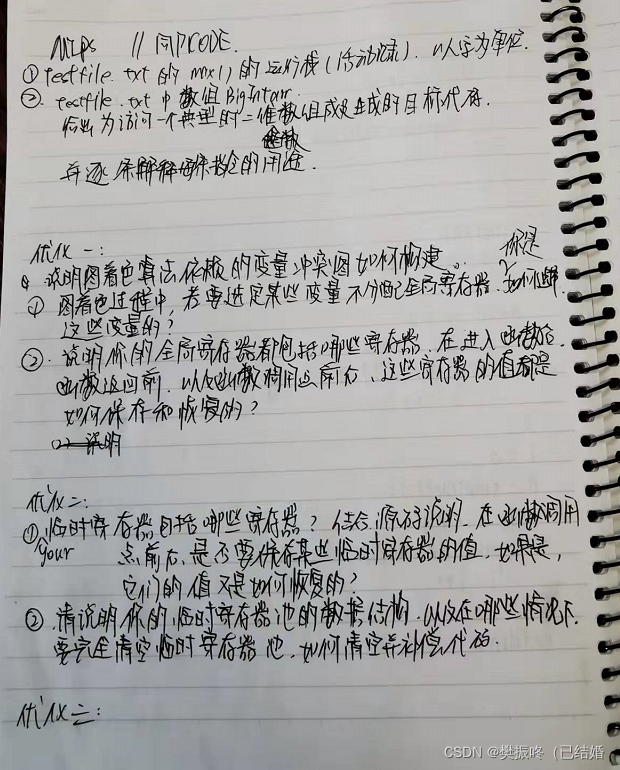 MIPS // 同PCODE.
① testfile.txt 的 mix() 的运行栈(活动记录). 以人字为单位.
②. testfile.txt 中数组 BigIntarr.
给出为访问一个典型的二维数组成员生成的目标代码.
并逐条解释每条指令的用途.
优化一:
说明图着色算法依赖的变量冲突图如何构建. 你是
① 图着色过程中, 若要选定某些变量不分配全局寄存器. 如何选择
这些变量的?
②. 说明你的全局寄存器都包括哪些寄存器. 在进入函数后.
函数返回前. 以及函数调用点前后, 这些寄存器的值都是
如何保存和恢复的?
说明
优化二:
①, 临时寄存器包括哪些寄存器? 结合源码说明, 在函数调用
your 点前后, 是否要保存某些临时寄存器的值, 如果是,
它们的值又是如何恢复的?
②, 请说明你的临时寄存器池的数据结构. 以及在哪些情况下.
要完全清空临时寄存器池, 如何清空并补偿代码.
优化三:
CSDN @樊振咚(已结婚